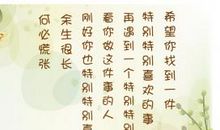 希望你找到一件
特别特别喜欢的事
再遇到一个特别特别
看你做这件事的人
刚好你也特别特别喜
余生很长
何必慌张